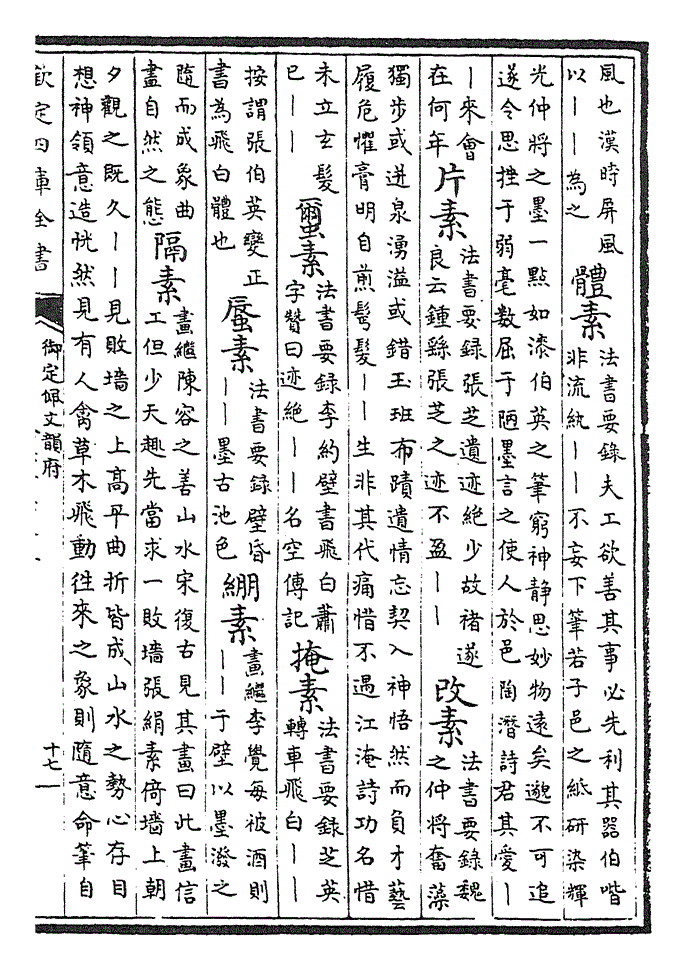 風也漢時屏風
以丨丨為之
體素
法書要錄夫工欲善其事必先利其器伯喈
非流紈丨丨不妄下筆若子邑之紙研染輝
光仲將之墨一點如漆伯英之筆窮神静思妙物遠矣邈不可追
遂令思挫于弱毫數屈于陋墨言之使人於邑陶潛詩君其愛丨
丨來會
在何年
片素
法書要錄張芝遺迹絶少故禇遂
良云鍾繇張芝之迹不盈丨丨
改素
法書要錄魏
之仲將奮藻
獨步或迸泉湧溢或錯玉班布蹟遺情忘契入神悟然而負才藝
履危懼膏明自煎髩髮丨丨生非其代痛惜不遇江淹詩功名惜
未立玄髮
已丨丨
蠒素
法書要錄李約壁書飛白蕭
字贊曰迹絶丨丨名空傳記
掩素
法書要錄芝英
轉車飛白丨丨
按謂張伯英變正
書為飛白體也
蜃素
法書要錄壁昏
丨丨墨古池色
綳素
畫繼李覺每被酒則
丨丨于壁以墨潑之
隨而成象曲
盡自然之態
隔素
畫繼陳容之善山水宋復古見其畫曰此畫信
工但少天趣先當求一敗墻張絹素倚墻上朝
夕觀之既久丨丨見敗墻之上髙平曲折皆成山水之勢心存目
想神領意造恍然見有人禽草木飛動徃来之象則隨意命筆自
欽定四庫全書
御定佩文韻府
十七